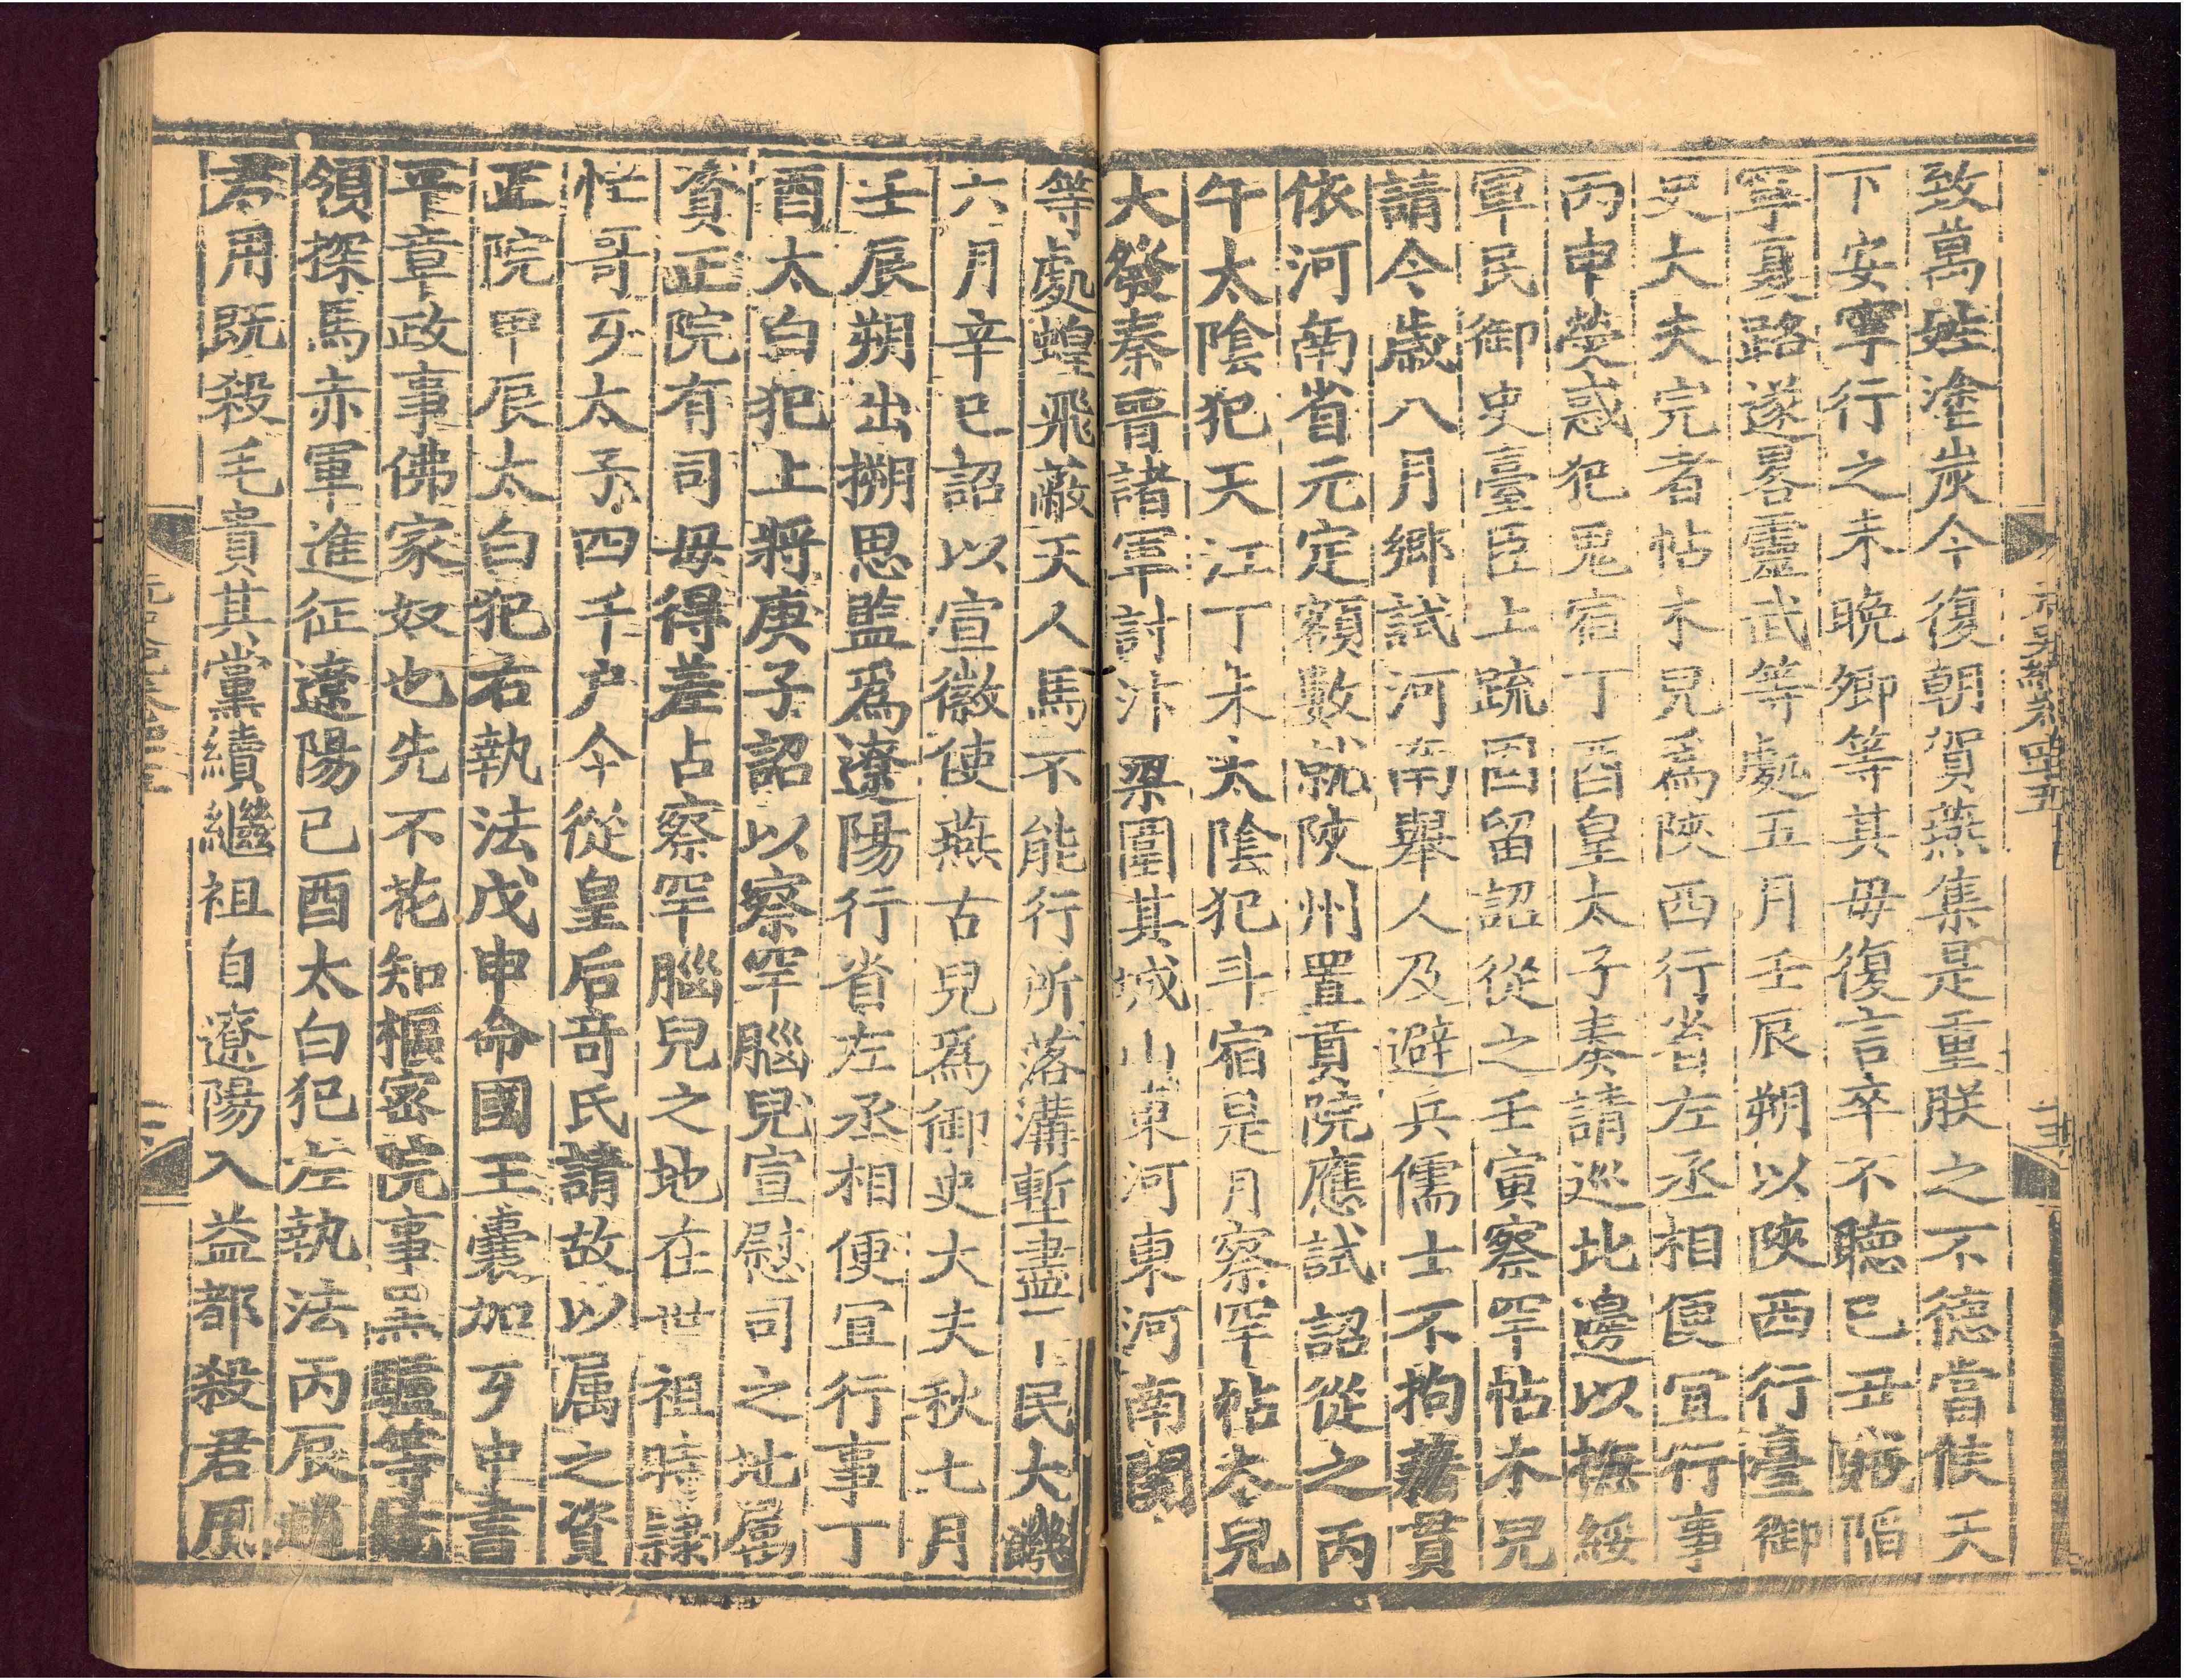 致萬姓塗炭今復朝賀燕集是重朕之不德當俟天
下安寧行之未晚卿等其毋復言卒不聽己丑賊陷
寧夏路遂畧靈武等處五月壬辰朔以陝西行臺御
史大夫完者帖木兒爲陝西行省左丞相便宜行事
丙申熒惑犯鬼宿丁酉皇太子奏請巡北邊以撫綏
軍民御史臺臣上疏固留詔從之壬寅察罕帖木兒
請今歲八月鄉試河南舉人及避兵儒士不拘籍貫
依河南省元定額數就陝州置貢院應試詔從之丙
午太陰犯天江丁未太陰犯斗宿是月察罕帖木兒
大發秦晉諸軍討汴梁圍其城山東河東河南關
等處蝗飛蔽天人馬不能行所落溝塹盡民大饑
六月辛巳詔以宣徽使燕古兒爲御史大夫秋七月
壬辰朔出搠思監爲遼陽行省左丞相便宜行事丁
酉太白犯上將庚子詔以察罕腦兒宣慰司之地屬
資正院有司毋得差占察罕腦兒之地在世祖時隸
忙哥歹太子四千户今從皇后奇氏請故以属之資
正院甲辰太白犯右執法戊申命國王囊加歹中書
平章政事佛家奴也先不花知樞密院事黑驢等統
領探馬赤軍進征遼陽己酉太白犯左執法丙辰趙
君用既殺毛貴其黨續繼祖自遼陽入益都殺君用